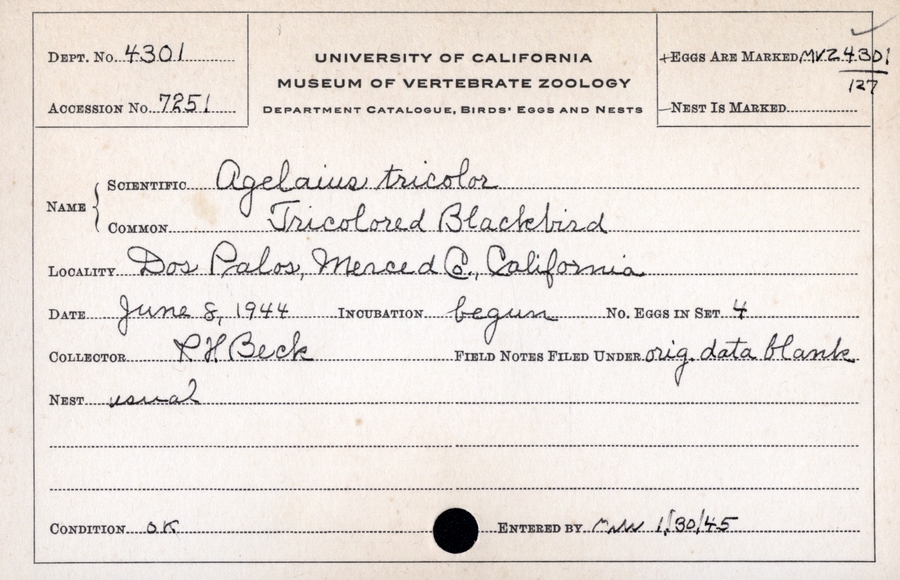 DEPT. No. 4301
ACCESSION No. 7251
UNIVERSITY OF CALIFORNIA
MUSEUM OF VERTEBRATE ZOOLOGY
DEPARTMENT CATALOGUE, BIRDS' EGGS AND NESTS
+EGGS ARE MARKED MVZ 4301
127
—NEST IS MARKED
NAME
SCIENTIFIC Agelaius tricolor
COMMON Tricolored Blackbird
LOCALITY Dos Palos, Merced Co., California
DATE June 8, 1944 INCUBATION begun No. EGGS IN SET 4
COLLECTOR R H Beck FIELD NOTES FILED UNDER orig. data blank
NEST usual
CONDITION OK ENTERED BY 1/30/45